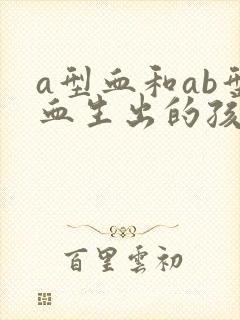 a型血和ab型
血生出的孩
百里雲初